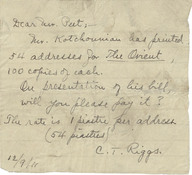 Dear Mr. Peet,-
Mr. Kotchounian has printed
54 addresses for The Orient,
100 copies of each.
On presentation of his bill,
will you please pay it?
The rate is 1 piastre per address
(54 piastres)
C. T. Riggs.
12/9/11